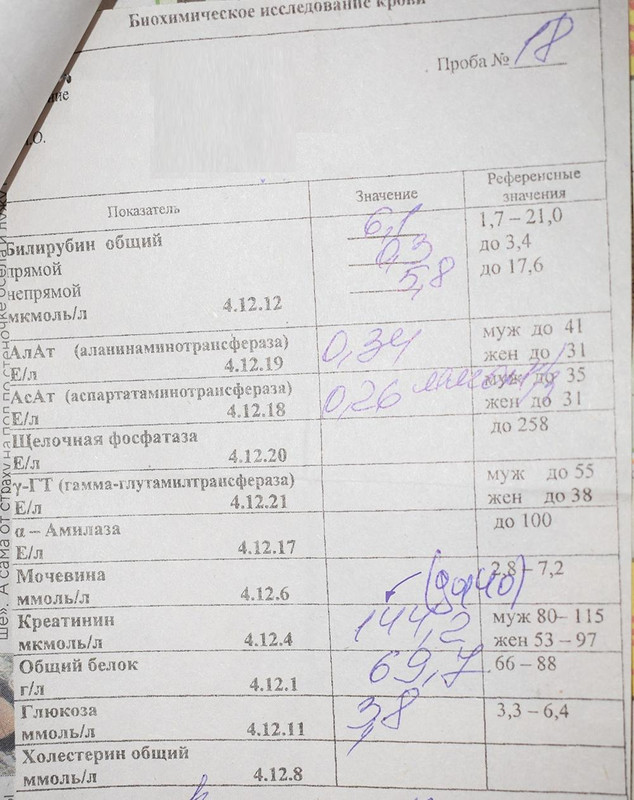 Биохимическое исследование крови
Проба № 18
Показатель Значение Референсные значения
Билирубин общий 6,1 1,7 – 21,0
прямой 0,3 до 3,4
непрямой 5,8 до 17,6
мкмоль/л 4.12.12
АлАт (аланинаминотрансфераза) 0,34 муж до 41
Е/л 4.12.19 жен до 31
АсАт (аспартатаминотрансфераза) 0,26 муж до 35
Е/л 4.12.18 жен до 31
Щелочная фосфатаза до 258
Е/л 4.12.20
γ-ГТ (гамма-глутамилтрансфераза) муж до 55
Е/л 4.12.21 жен до 38
α – Амилаза до 100
Е/л 4.12.17
Мочевина 2,8 – 7,2
ммоль/л 4.12.6
Креатинин 144,2 муж 80– 115
мкмоль/л 4.12.4 жен 53 – 97
Общий белок 69,7 66 – 88
г/л 4.12.1
Глюкоза 3,8 3,3 – 6,4
ммоль/л 4.12.11
Холестерин общий
ммоль/л 4.12.8